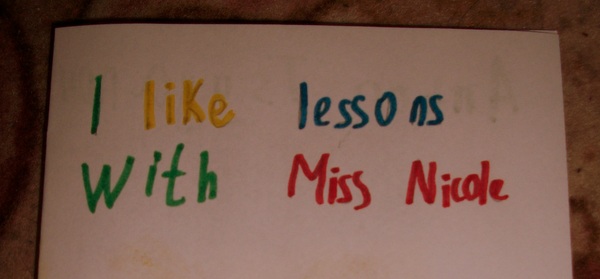 I like lessons
With Miss Nicole